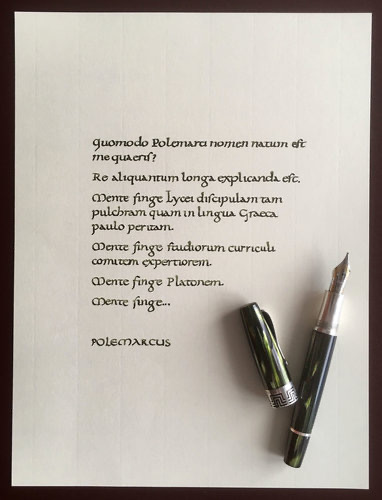 Quomodo Polemarci nomen natum est
me quaeris?
Re aliquantum longa explicanda est.
Mente finge Lycei discipulam tam
pulchram quam in lingua Graeca
paulo peritam.
Mente finge studiorum curriculi
comitem expertiorem.
Mente finge Platonem.
Mente finge...
POLEMARCUS